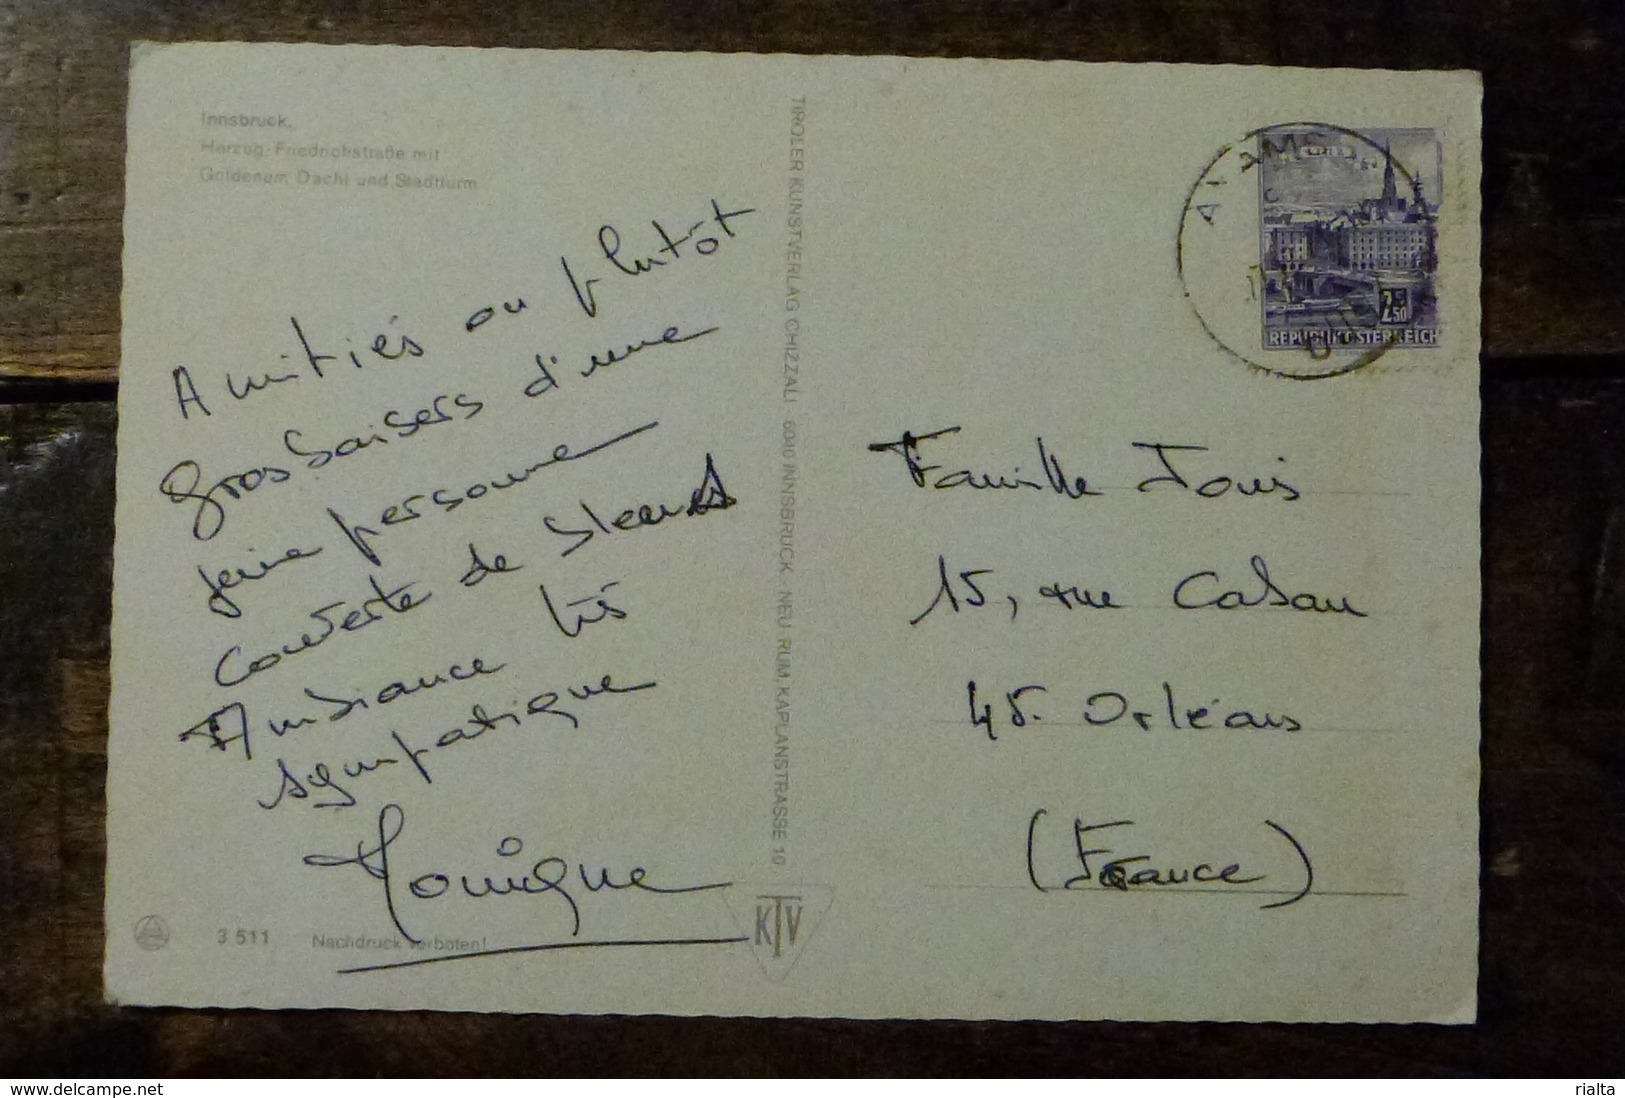 Innsbruck,
Herzog-Friedrichstraße mit
Goldenem Dachl und Stadtturm
Amitiés ou plutôt
gros baisers d'une
personne
couverte de
Ambiance très
sympatique
Monique
3 511
Nachdruck verboten!
TIROLER KUNSTVERLAG CHIZZALI 6040 INNSBRUCK NEU RUM, KAPLANSTRASSE 10
KTV
2.50
REPUBLIK ÖSTERREICH
Famille
15, rue Caban
45. Orléans
(France)
www.delcampe.net
rialta